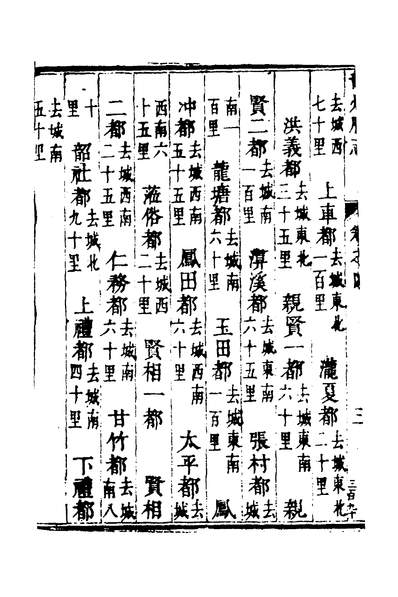 去城西七十里 上車都去城東北一百里 瀧夏都去城東北二十里
洪義都去城東北三十五里 親賢一都去城東南六十里 親
賢二都去城南一百里 潭溪都去城東南六十五里 張村都去城
南一百里 龍塘都去城南六十里 玉田都去城東南一百里 鳳
冲都去城西南五十五里 鳳田都去城西南六十里 太平都去城
西南六十五里 蒞俗都去城西二十里 賢相一都 賢相
二都去城西南二十五里 仁務都去城南六十里 甘竹都去城南八
十里 韶社都去城北九十里 上禮都去城南四十里 下禮都
去城南五十里